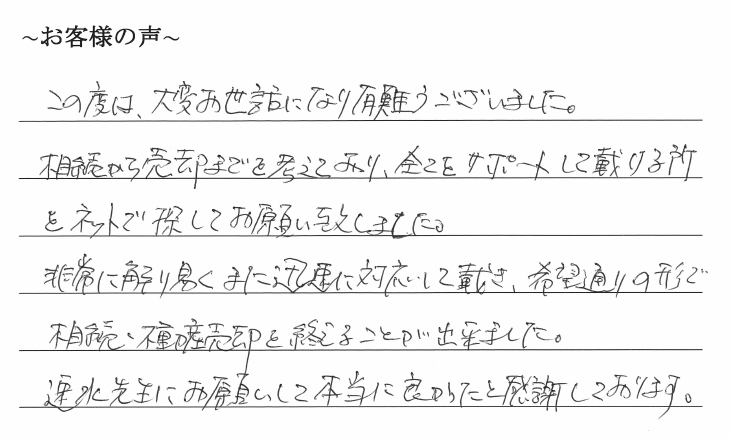 ~お客様の声~
この度は、大変お世話になり有難うございました。
相続から売却までを考えており、全てをサポートして戴ける所
をネットで探してお願い致しました。
非常に解り易くまた迅速に対応して戴き、希望通りの形で
相続・不動産売却を終えることが出来ました。
速水先生にお願いして本当に良かったと感謝しております。